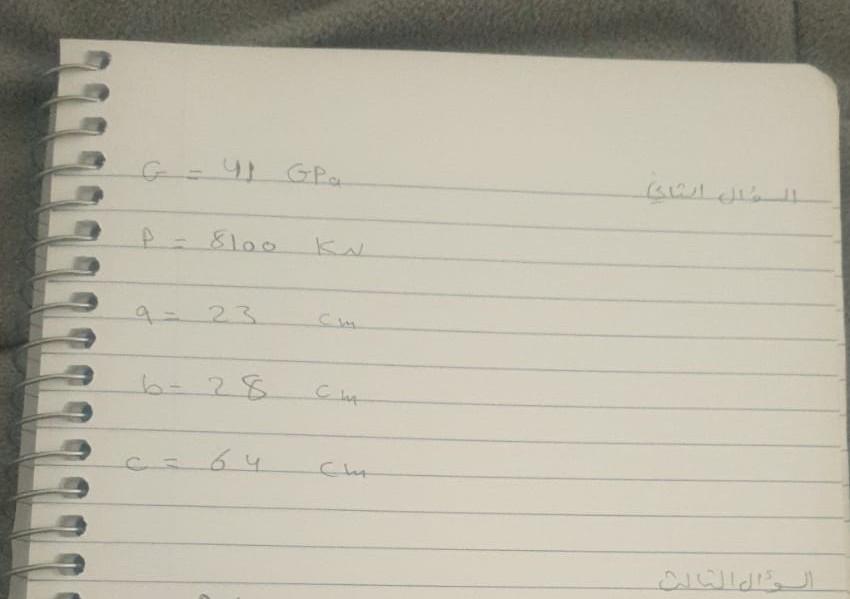 السؤال الثاني
G = 41 GPa
P = 8100 KN
a = 23 cm
b = 28 cm
c = 64 cm
السؤال الثالث